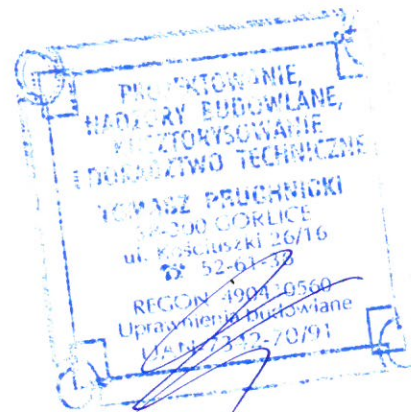 PROJEKTOWANIE,
NADZORY BUDOWLANE,
KOSZTORYSOWANIE
I DORADZTWO TECHNICZNE
TOMASZ PRUCHNICKI
GORLICE
ul. Kościuszki 26/16
☎ 52-61-38
REGON
Uprawnienia budowlane